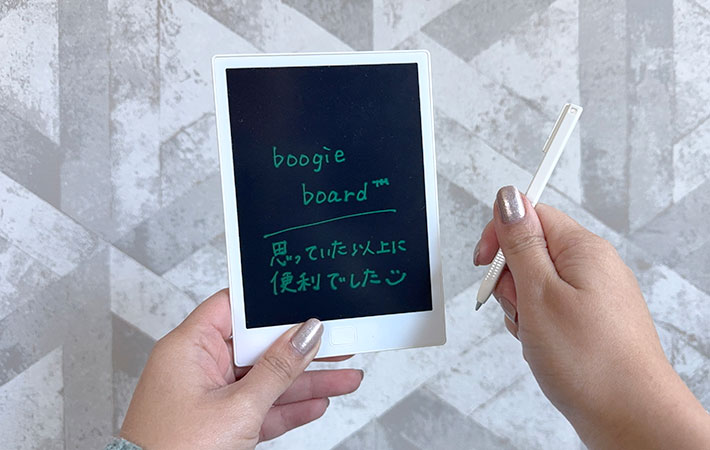 boogie
board™
思っていた以上に
便利でした☺